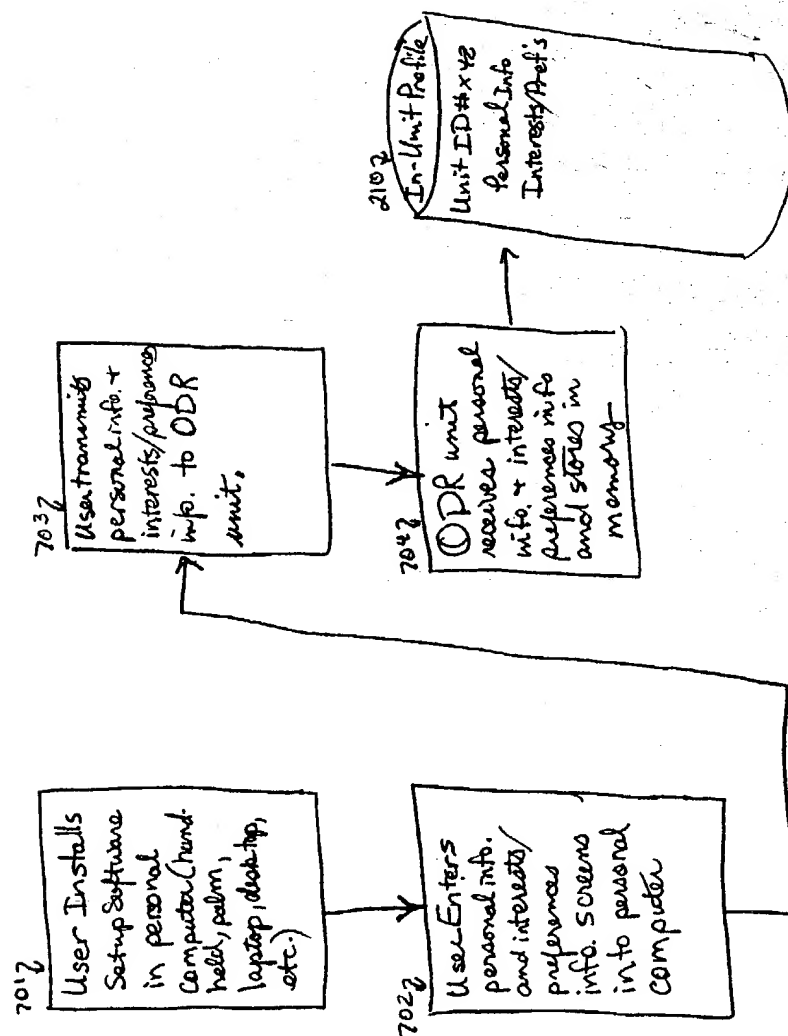 701
User Installs
Setup Software
in personal
computer (hand-
held, palm,
laptop, desktop,
etc.)
702
User Enters
personal info.
and interests/
preferences
info. screens
into personal
computer
703
User transmits
personal info. +
interests/preferences
info. to ODR
unit.
704
ODR unit
receives personal
info. + interests/
preferences info
and stores in
memory
210
In-Unit Profile
Unit ID # x42
Personal Info
Interests/Pref's